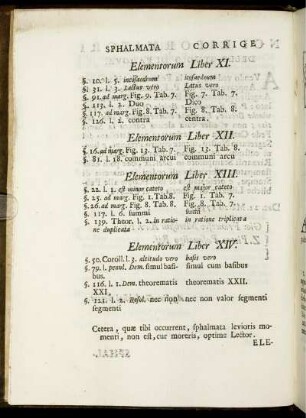 SPHALMATA CORRIGE
Elementorum Liber XI.
§. 10. l. 5.
§. 31. l. 3. Lactus vero Latus vero
§. 91. ad marg. Fig. 9. Tab. 7. Fig. 7. Tab. 7.
§. 113. l. 2. Duo Dico
§. 117. ad marg. Fig. 8. Tab. 7. Fig. 8. Tab. 8.
§. 126. l. 2. contra centra.
Elementorum Liber XII.
§. 16. ad marg. Fig. 13. Tab. 7. Fig. 13. Tab. 8.
§. 81. l. 18. communi arcui communi arcu
Elementorum Liber XIII.
§. 22. l. 3. est minor cætera est major cætera
§. 25. ad marg. Fig. 1. Tab. 8. Fig. 1. Tab. 7.
§. 26. ad marg. Fig. 8. Tab. 7. Fig. 8. Tab. 8.
§. 117. l. 6. summi sumi
§. 139. Theor. l. 2. in ratione in ratione triplicata
ne duplicata
Elementorum Liber XIV.
§. 50. Coroll. l. 3. altitudo vero basis vero
§. 79. l. penul. Dem. simul basibus simul cum basibus
bus.
§. 116. l. 1. Dem. theorematis theorematis XXII.
XXI,
§. 121. l. 2. Resol. nec non nec non valor segmenti
segmenti
Cetera, quæ tibi occurrent, sphalmata levioris momenti,
non est, cur moreris, optime Lector.
ELE-